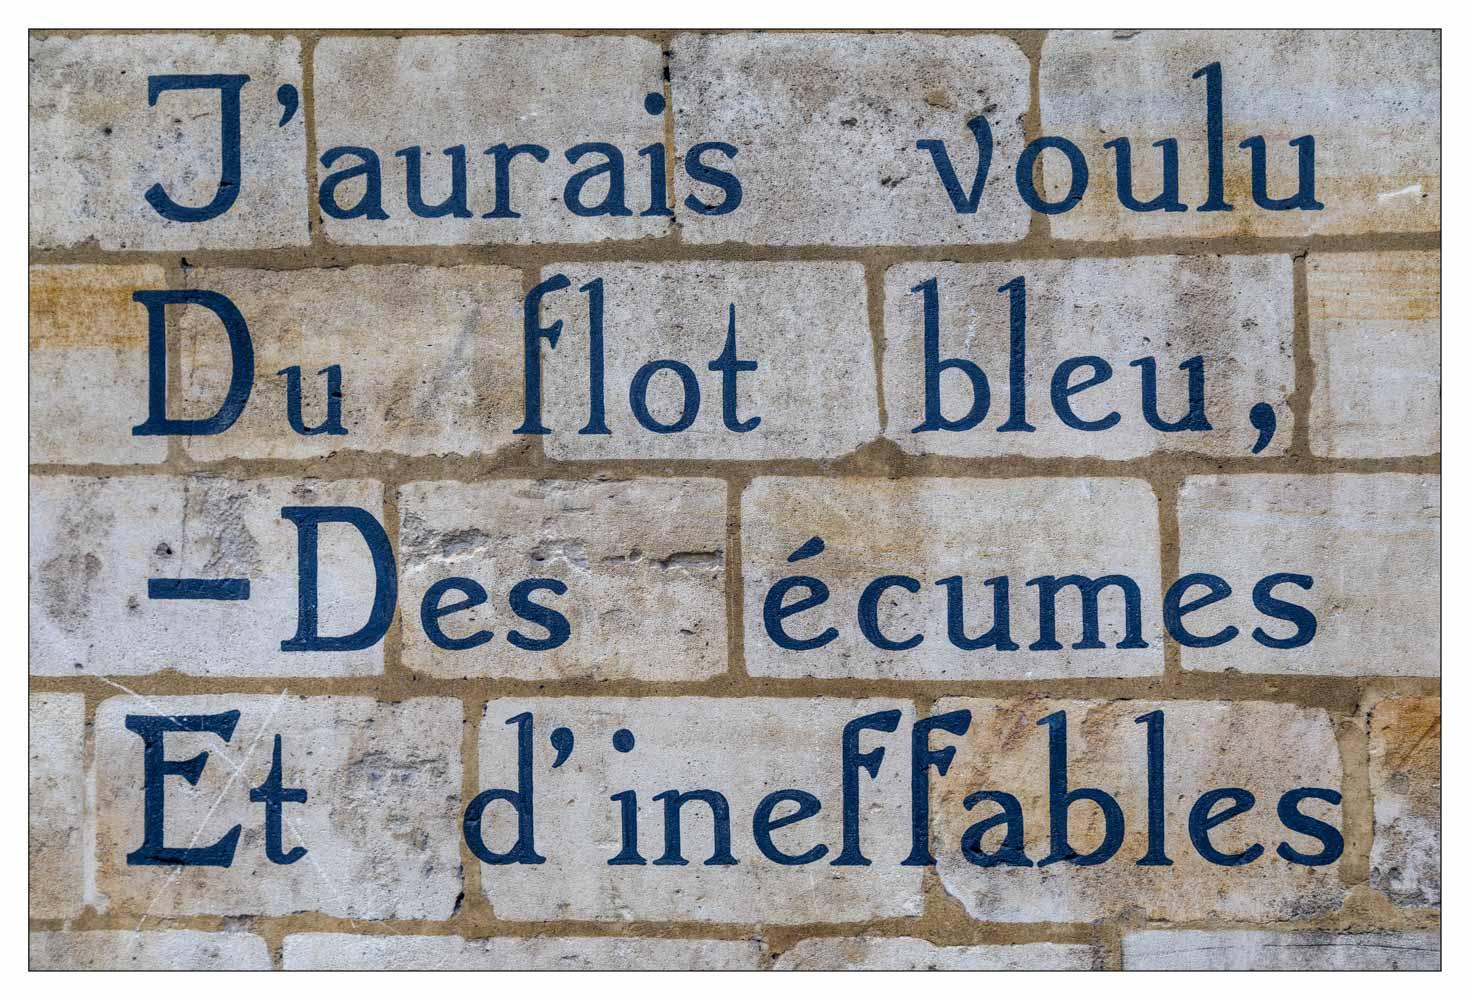 J'aurais voulu
Du flot bleu,
-Des écumes
Et d'ineffables